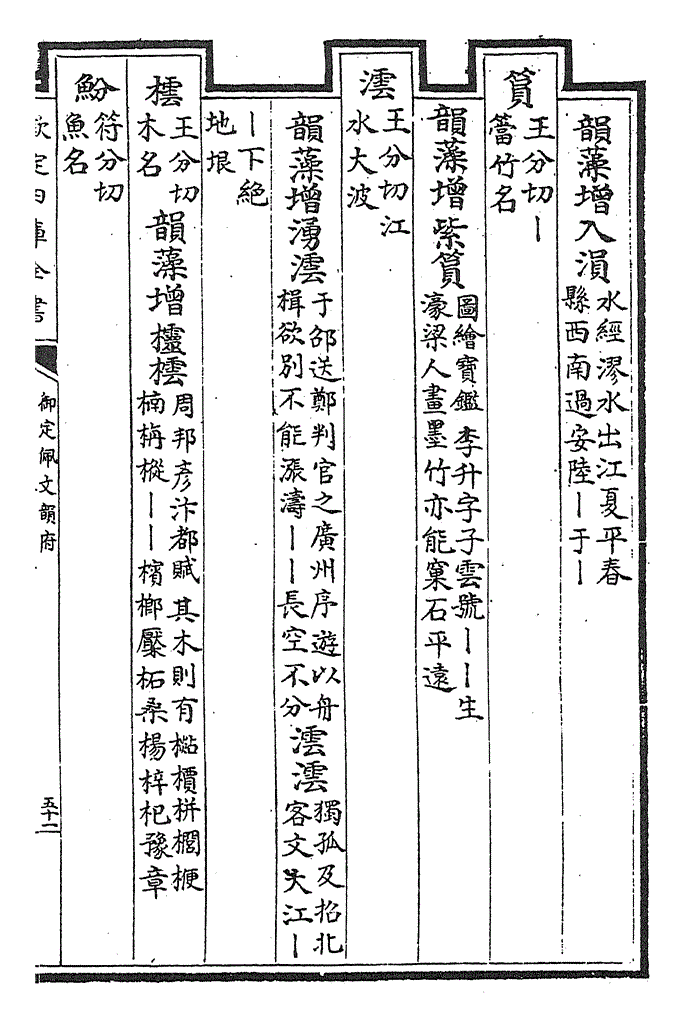 韻藻增入溳水經漻水出江夏平春
縣西南過安陸丨于丨
篔王分切丨
簹竹名
韻藻增紫篔圖繪寶鑑李升字子雲號丨丨生
濠梁人畫墨竹亦能窠石平遠
澐王分切江
水大波
韻藻增湧澐于邵送鄭判官之廣州序遊以舟
楫欲別不能漲濤丨丨長空不分澐澐獨孤及招北
客文大江丨
丨下絶
地垠
橒王分切
木名
韻藻增櫺橒周邦彥汴都賦其木則有樅檟栟櫚楩
楠栴樅丨丨檳榔檿柘桑楊梓杞豫章
魵符分切
魚名
欽定四庫全書
御定佩文韻府
五十二